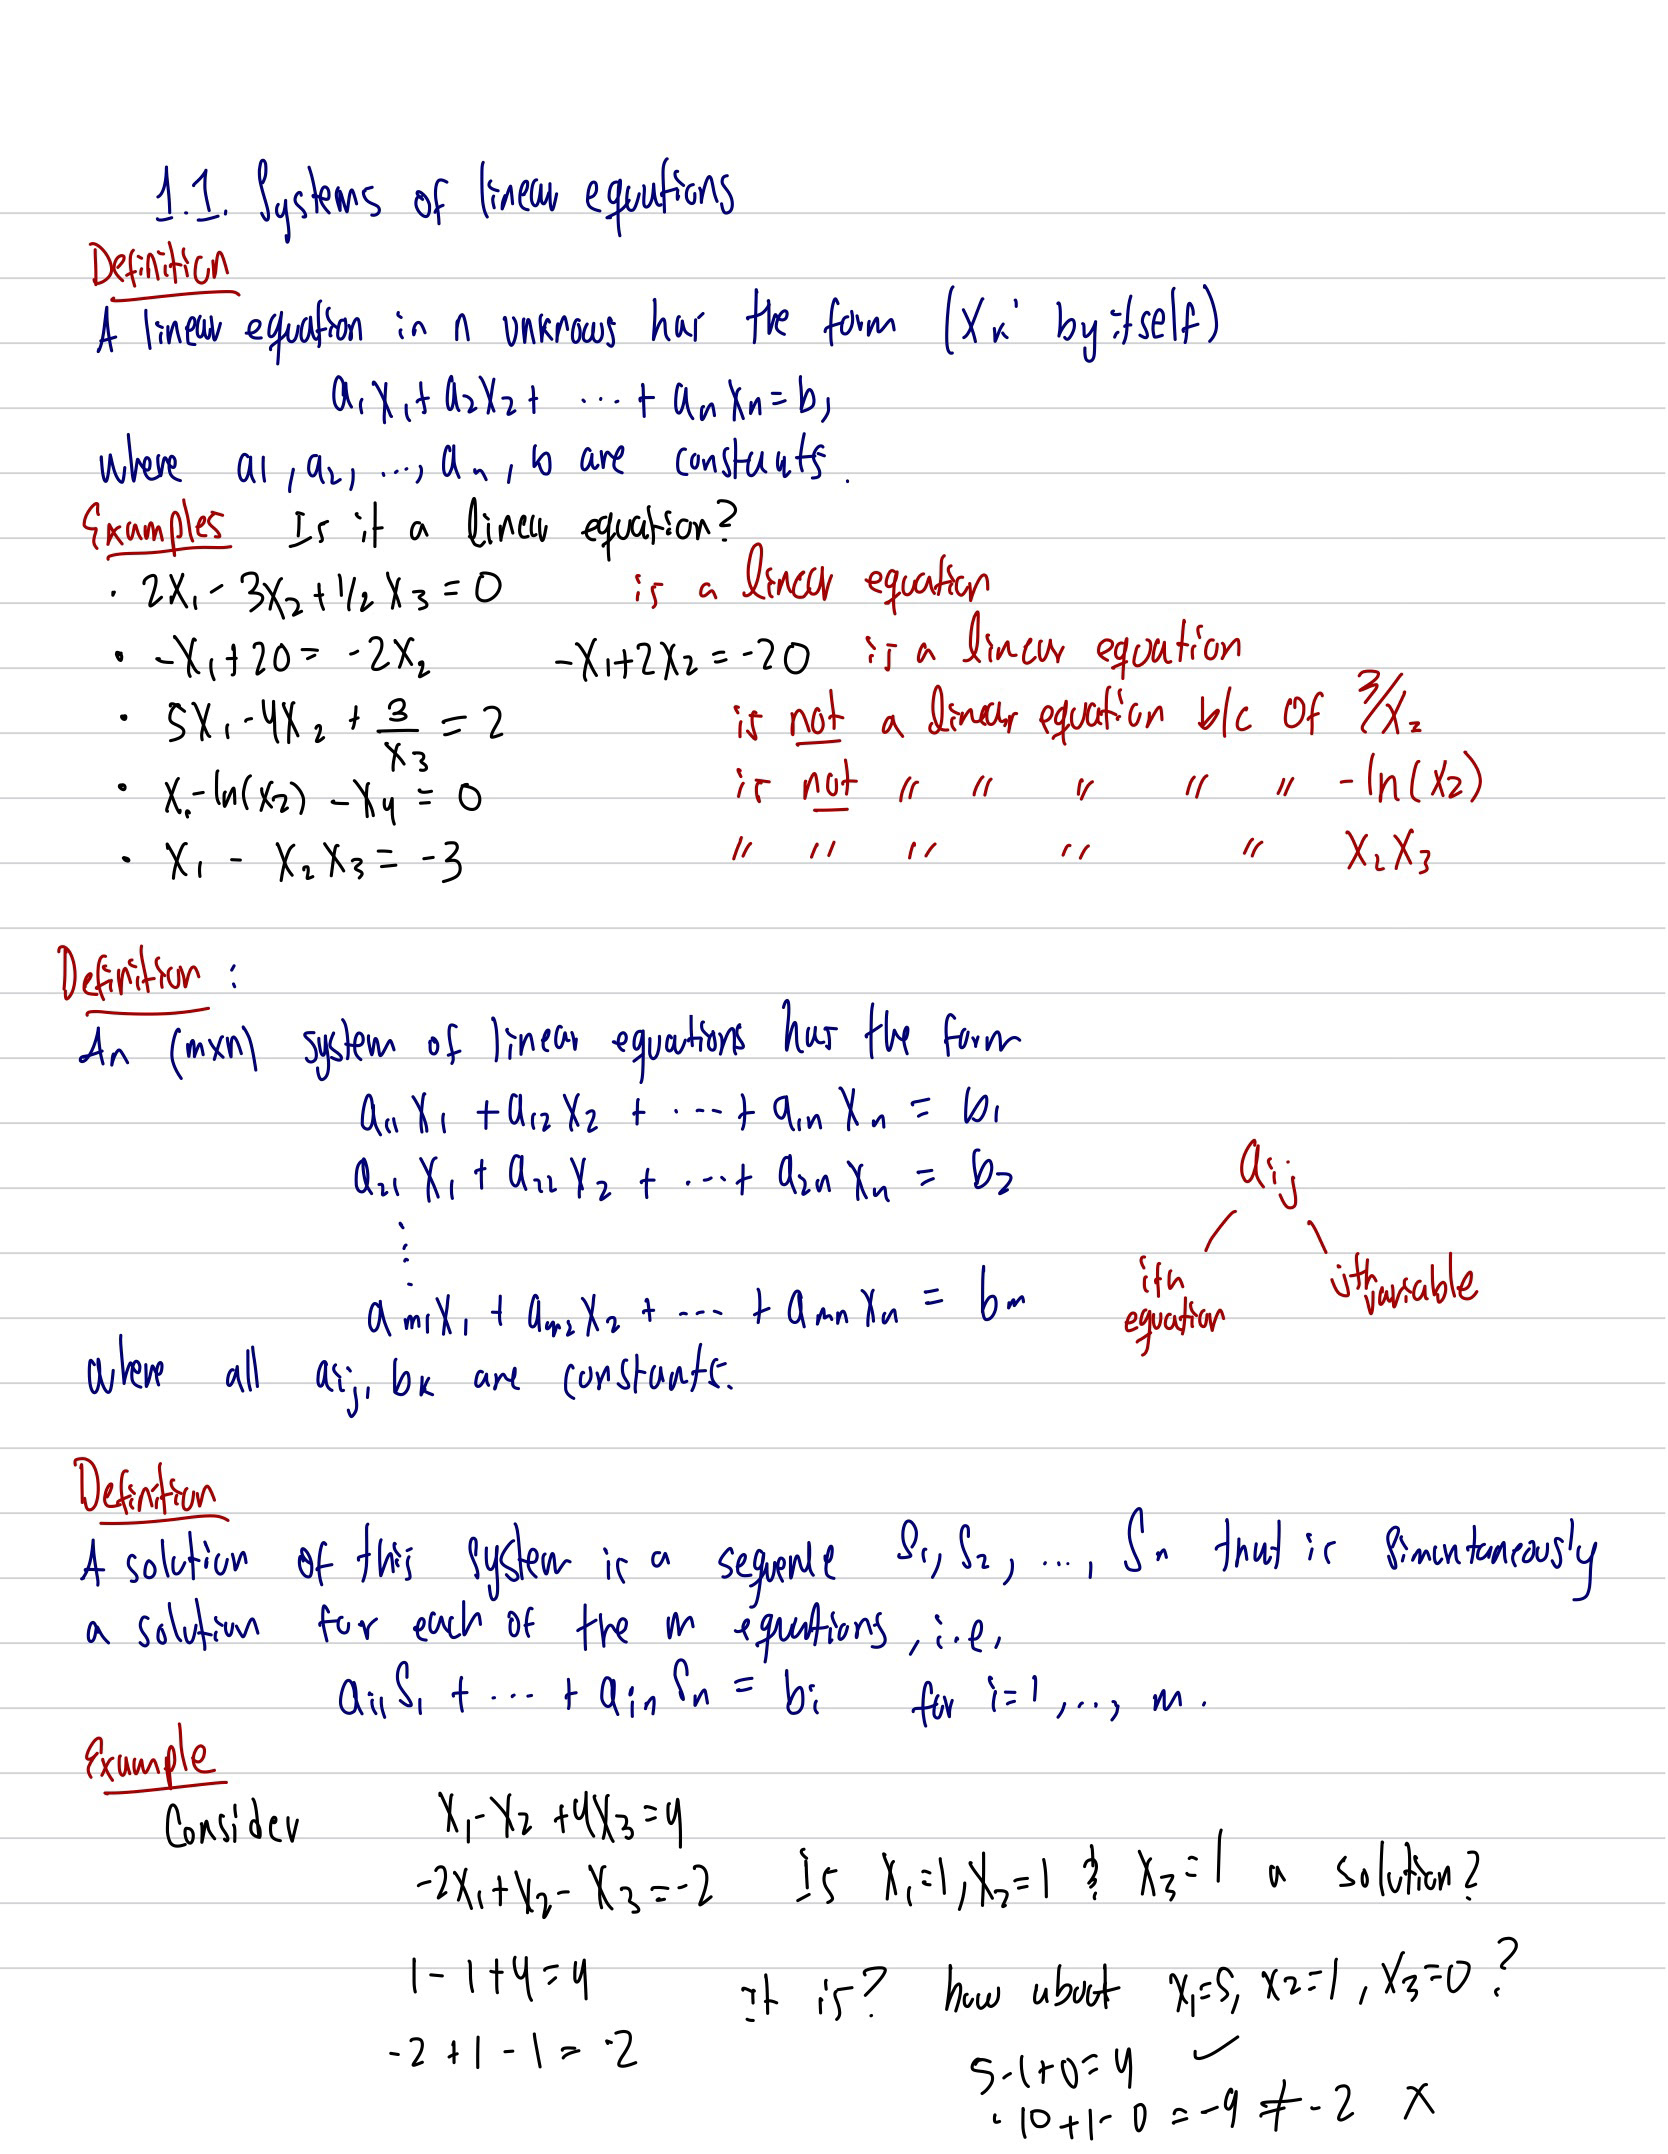 1.1. Systems of linear equations
Definition
A linear equation in n unknows has the form (Xk' by itself)
a₁x₁ + a₂x₂ + ... + aₙxₙ = b,
where a1, a₂, ..., aₙ, b are constants.
Examples Is it a linear equation?
· 2x₁ - 3x₂ + 1/2 x₃ = 0 is a linear equation
· -x₁ + 20 = -2x₂ -x₁ + 2x₂ = -20 is a linear equation
· 5x₁ - 4x₂ + 3/x₃ = 2 is not a linear equation b/c of 3/x₂
· x₁ - ln(x₂) - x₄ = 0 is not " " " " " -ln(x2)
· x₁ - x₂x₃ = -3 " " " " " x₂x₃
Definition :
An (mxn) system of linear equations has the form
a₁₁x₁ + a₁₂x₂ + ... + a₁ₙxₙ = b₁
a₂₁x₁ + a₂₂x₂ + ... + a₂ₙxₙ = b₂
aij
⋮
ith equation
jth variable
aₘ₁x₁ + aₘ₂x₂ + ... + aₘₙxₙ = bₘ
where all aij, bk are constants.
Definition
A solution of this system is a sequence S₁, S₂, ..., Sₙ that is simultaneously
a solution for each of the m equations, i.e,
ai₁S₁ + ... + aiₙSₙ = bi for i=1, ..., m.
Example
Consider x₁ - x₂ + 4x₃ = 4
-2x₁ + x₂ - x₃ = -2 Is x₁=1, x₂=1 & x₃=1 a solution?
1 - 1 + 4 = 4 it is? how about x₁=5, x2=1, x₃=0?
-2 + 1 - 1 = -2
5 - 1 + 0 = 4 ✓
-10 + 1 - 0 = -9 ≠ -2 X